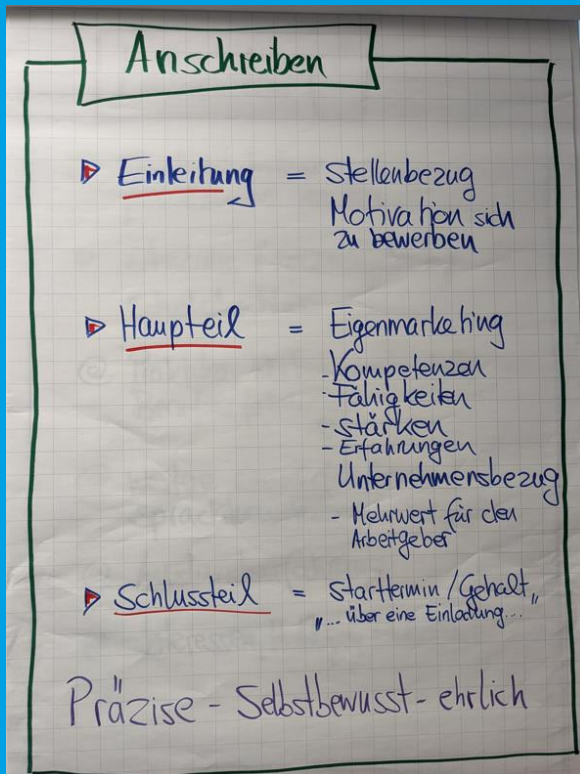 Anschreiben
Einleitung = Stellenbezug
Motivation sich
zu bewerben
Haupteil = Eigenmarketing
- Kompetenzen
- Fähigkeiten
- Stärken
- Erfahrungen
Unternehmensbezug
- Mehrwert für den
Arbeitgeber
Schlussteil = Starttermin / Gehalt
„... über eine Einladung... "
Präzise - Selbstbewusst - ehrlich